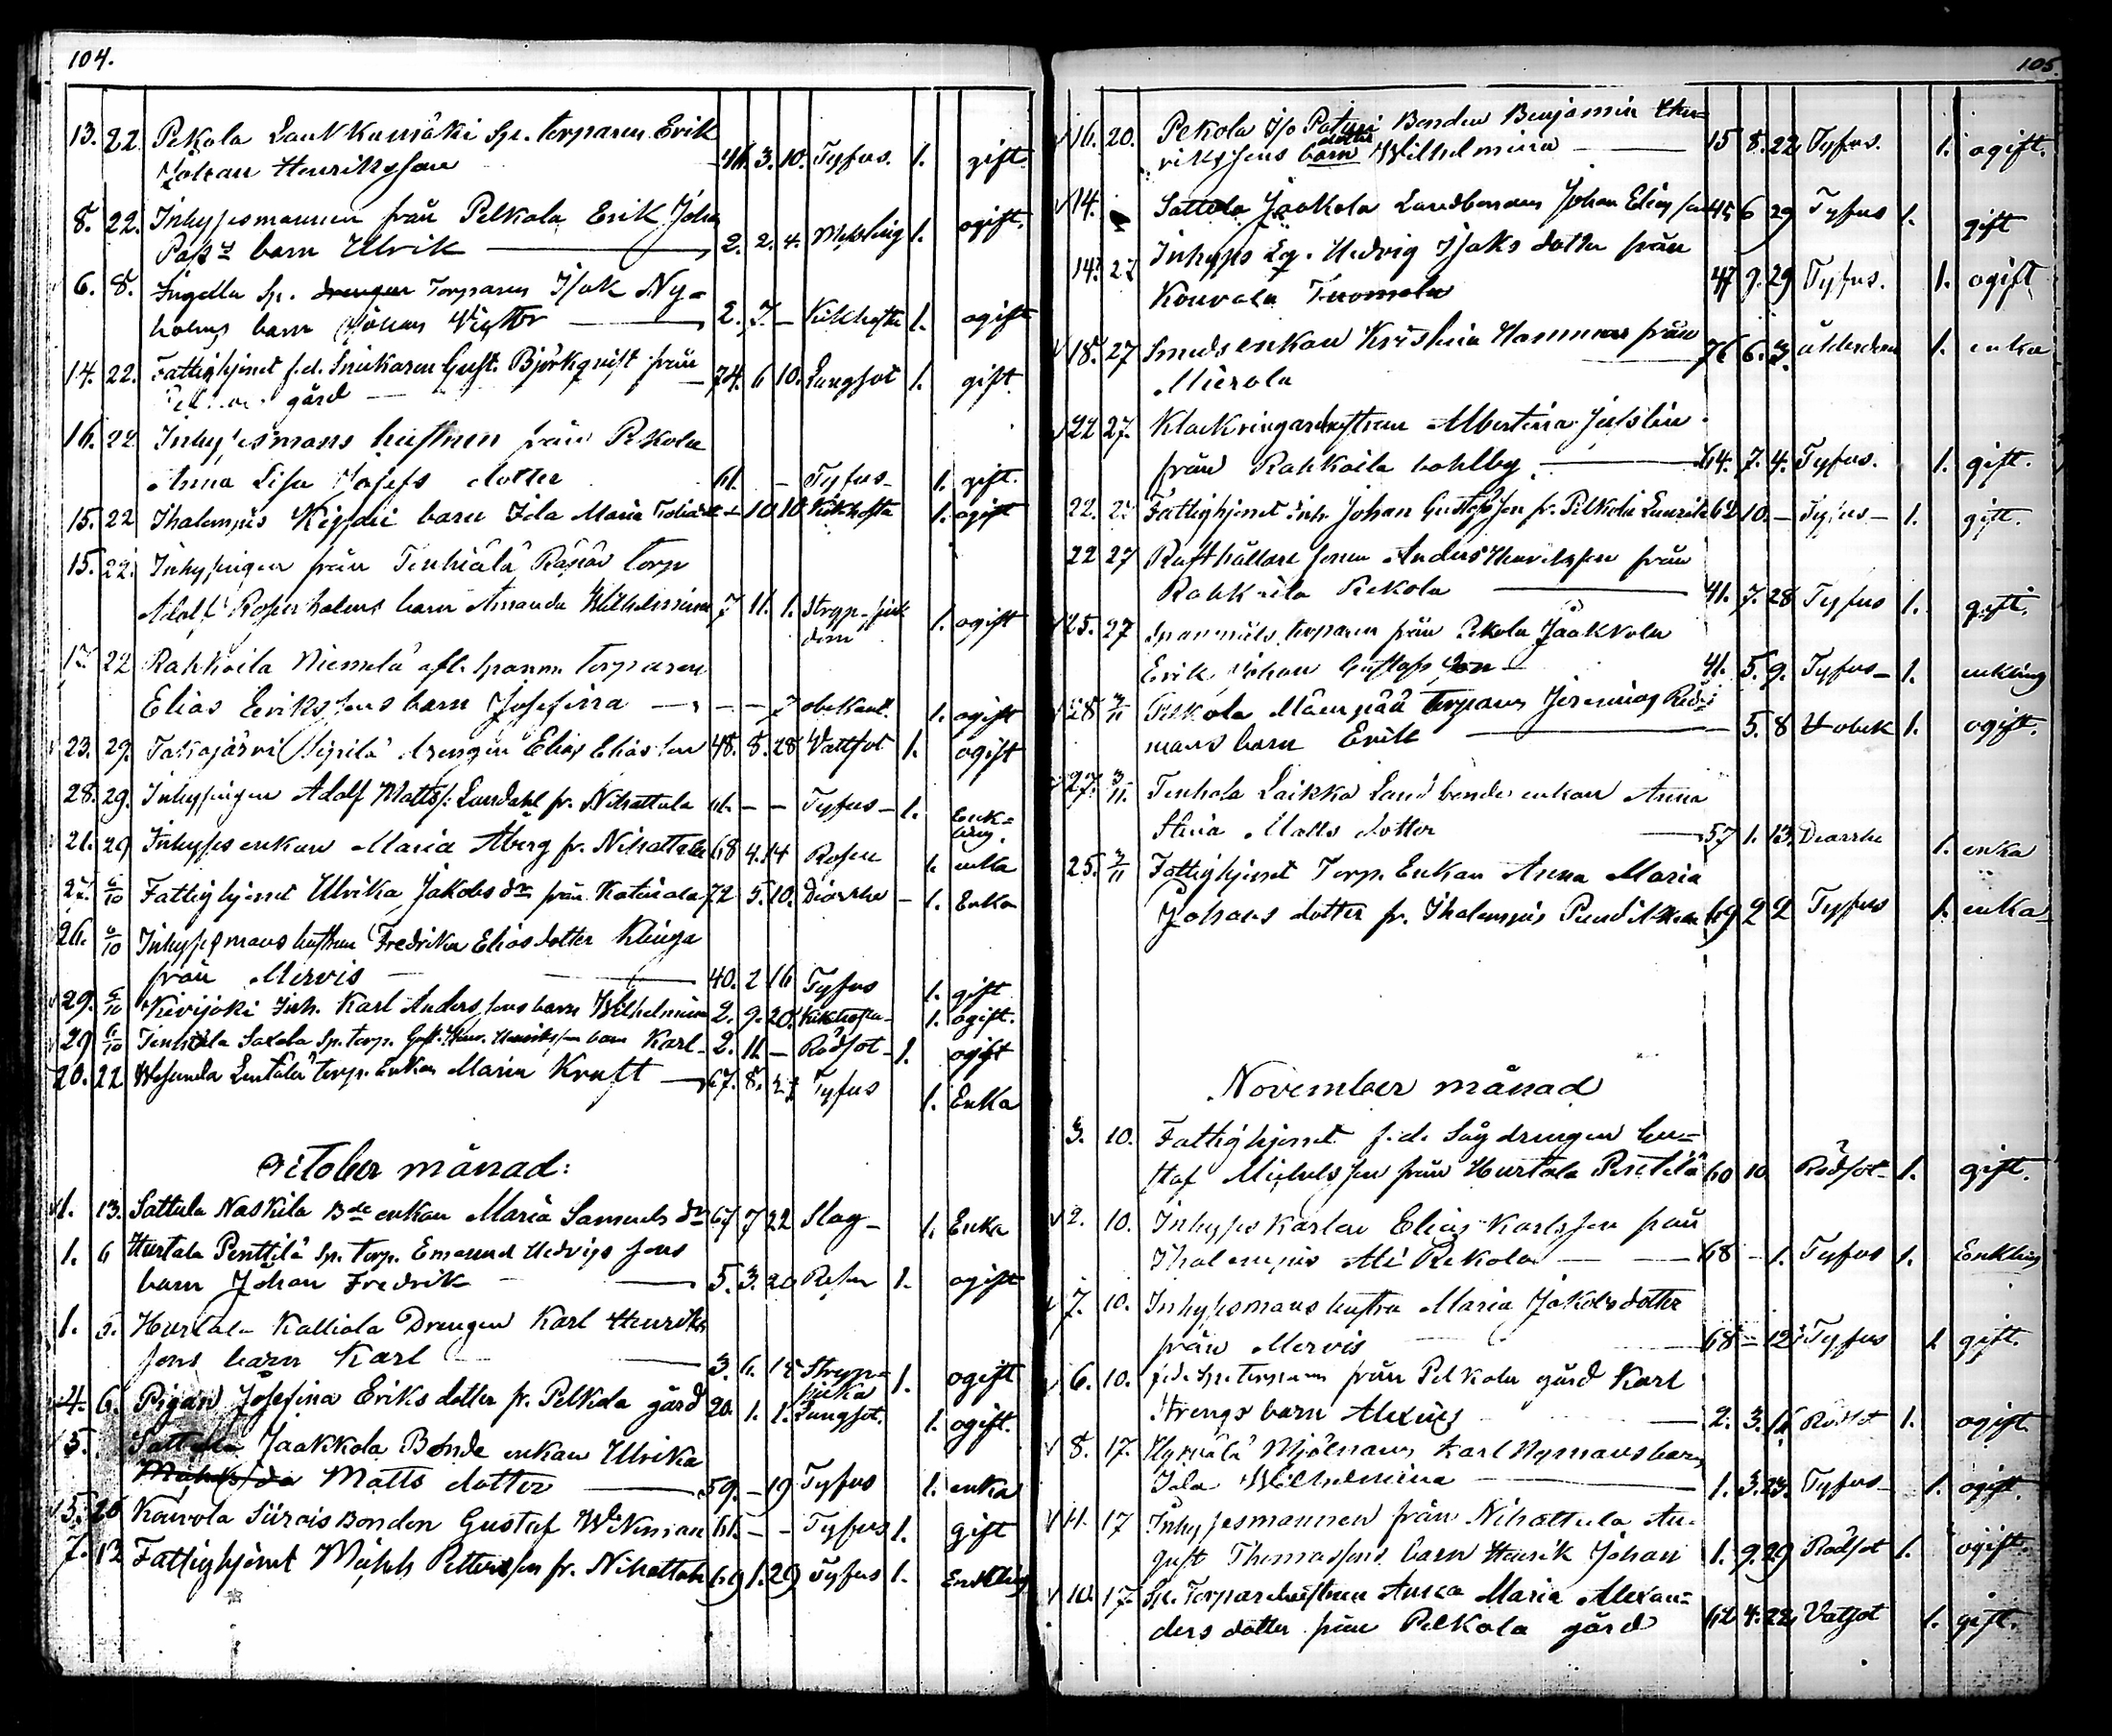 104.
13. 22. Pekola Laukkumäki Sp. torparen Erik
Johan Henriksson 3. 10. Tyfus. 1. gift.
8. 22. Inhysesmannen från Pelkola Erik Joh
barn Ulrik 2. 2. 4. Messling 1. ogift.
6. 8. Ingella Sp. drengen Torparen Isak Ny-
holms barn Johan Victor 2. 7. – Kikhosta 1. ogift
14. 22. Fattighjonet f.d. Snickaren Gust. Björkqvist från
gård 74. 6 10. Lungsot 1. gift.
16. 22 Inhysesmans hustrun från Pekola
Anna Lisa Josefs dotter 61. – Tyfus 1. gift.
15. 22 Ihalempis barn Ida Maria – 10 10 Kikhosta 1. ogift
15. 22. Inhysingen från Tenhiälä Räsäs torp
Adolf Rosenholms barn Amanda Wilhelmina 7 11. 1. Stryp-sjuk
dom 1. ogift
22 Rahkoila Niemelä afl. spanm. torparen
Elias Eriksons barn Josefina – – 7 obekant. 1. ogift
23. 29. Takajärvi drengen Elias Eliasson 48. 8. 28 Vattsot 1. ogift
28. 29. Inhysingen Adolf Matts: Lundahl fr. Nihattula 61. – – Tyfus 1. Enk-
ling.
21. 29 Inhyses enkan Maria Åberg fr. Nihattula 68 4. 14 Rosen 1. enka
27. 6/10 Fattighjonet Ulrika Jakobs dr från 72 5. 10. Diarrhe 1. Enka
26. 6/10 Inhysesmans hustrun Fredrika Elias dotter Klinga
från Mervis 40. 2 16 Tyfus 1. gift
29. 6/10 Kivijoki Inh. Karl Anders sons barn Wilhelmina 2. 9. 20. Kikhosta 1. ogift.
29 6/10 Saxela Sp. torp. barn Karl 2. 11 – Rödsot 1. ogift
20. 22 Wesunda torp. Enkan Maria Kraft 67. 8. 27 Tyfus 1. Enka
October månad:
1. 13. Sattula Naskila Bde enkan Maria Samuels dr 67 7 22 Slag 1. Enka
1. 6 Hurtala Penttilä Sp. torp. Emanuel Hedvigs sons
barn Johan Fredrik 5. 3. 20 Rosen 1. ogift
1. 5. Hurtala Kalliola Drengen Karl Henriks
sons barn Karl 3. 6. 18 Stryp-
sjuka 1. ogift
4. 6. Pigan Josefina Eriks dotter fr. Pelkola gård 20. 1. 1. Lungsot. 1. ogift.
5. Sattula Jaakkola Bonde enkan Ulrika
Matts dotter 59. – 19 Tyfus 1. enka
5. Bonden Gustaf Wikman 61. – – Tyfus 1. gift
7. 13 Fattighjonet Michel Pettersson fr. Nihattula 69 1. 29 Tyfus 1. Enkling
105.
16. 20. Pekola Bonden Benjamin Hen-
rikssons barn dotter Wilhelmina 15 8. 22. Tyfus. 1. ogift.
14. Sattula Jaakola Landbonden Johan Eliasson 45 6 29 Tyfus 1. gift
14. 27 Inhyses Eg. Hedvig Isaks dotter från
Kouvola Tuomola 47 9. 29 Tyfus. 1. ogift
18. 27 Smeds enkan Kristina Hammar från
Mierola 76 6. 3. ålderdom 1. enka
22 27. Klockringarehustrun Albertina Juslin
från Rahkoila bohlby 64. 7. 4. Tyfus. 1. gift.
22. 27 Fattighjonet inh. Johan Gustafsson fr. Pelkola 62 10. – Tyfus – 1. gift.
22 27 Rusthållare sonen Anders Henriksson från
Rahkoila Pekola 41. 7. 28 Tyfus 1. gift.
25. 27 Spanmåls torparen från Pekola Jaakkola
Erik Johan Gustafs son 41. 5. 9. Tyfus – 1. enkling
28 3/11 Pelkola Mäenpää torparen Jeremias Red-
mans barn Erik 5. 8 obek 1. ogift.
27. 3/11. Tenhola Laikka Landbonde enkan Anna
Stina Matts dotter 57 1. 13. Diarrhe 1. enka
25. 3/11 Fattighjonet Torp. Enkan Anna Maria
Johans dotter fr. Ihalempis 69 2 2 Tyfus 1. enka
November månad
3. 10. Fattighjonet f.d. Sågdrengen Gu-
staf Michelsson från Hurtala Penttilä 60 10. Rödsot 1. gift.
2. 10. Inhyses karlen Elias Karlsson från
Ihalempis Ali Pekola 68 – 1. Tyfus 1. Enkling
7. 10. Inhysesmans hustru Maria Jakobsdotter
från Mervis 68 – 12 Tyfus 1 gift.
6. 10. f.d. Sp. torparen från Pelkola gård Karl
Strengs barn Alexius 2. 3. 16 Rödsot 1. ogift
8. 17. Hyrvälä Mjölnaren Karl Nymans barn
Ida Wilhelmina 1. 3. 23. Tyfus 1. ogift.
11. 17 Inhysesmannen från Nihattula Au-
gust Thomassons barn Henrik Johan 1. 9. 29 Rödsot 1. ogift
10. 17. Sp. Torparehustrun Anna Maria Alexan-
ders dotter från Pelkola gård 62 4. 22. Vatsot 1. gift.